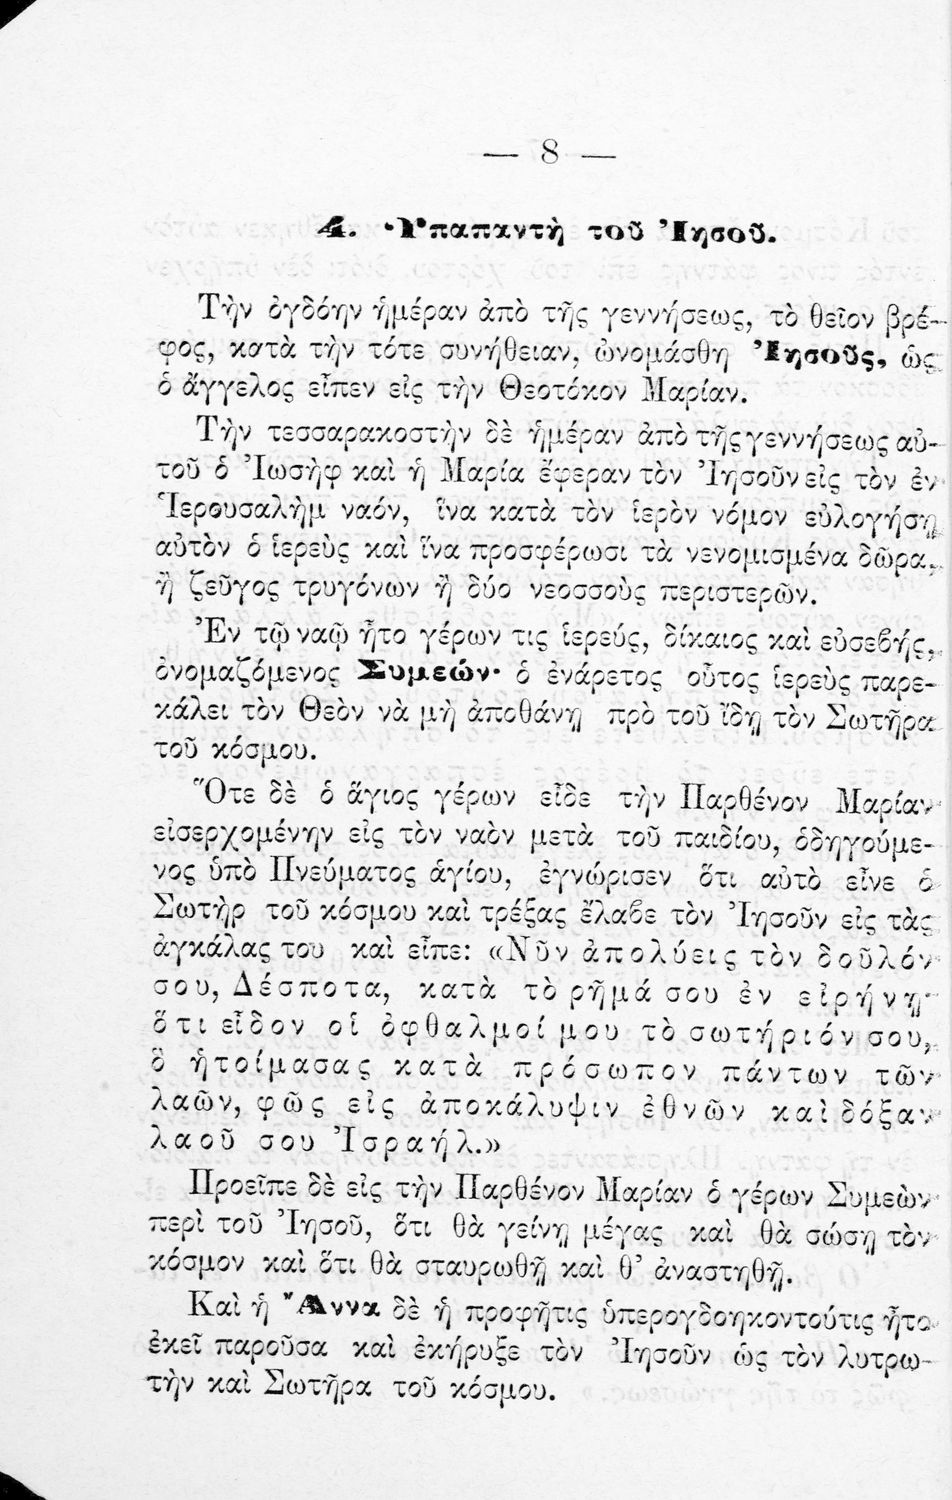 — 8 —
4. Ὑπαπαντὴ τοῦ Ἰησοῦ.
Τὴν ὀγδόην ἡμέραν ἀπὸ τῆς γεννήσεως, τὸ θεῖον βρέ-
φος, κατὰ τὴν τότε συνήθειαν, ὠνομάσθη Ἰησοῦς, ὡς
ὁ ἄγγελος εἶπεν εἰς τὴν Θεοτόκον Μαρίαν.
Τὴν τεσσαρακοστὴν δὲ ἡμέραν ἀπὸ τῆς γεννήσεως αὐ-
τοῦ ὁ Ἰωσὴφ καὶ ἡ Μαρία ἔφεραν τὸν Ἰησοῦν εἰς τὸν ἐν
Ἱερουσαλὴμ ναόν, ἵνα κατὰ τὸν ἱερὸν νόμον εὐλογήσῃ
αὐτὸν ὁ ἱερεὺς καὶ ἵνα προσφέρωσι τὰ νενομισμένα δῶρα,
ἢ ζεῦγος τρυγόνων ἢ δύο νεοσσοὺς περιστερῶν.
Ἐν τῷ ναῷ ἦτο γέρων τις ἱερεύς, δίκαιος καὶ εὐσεβής,
ὀνομαζόμενος Συμεών· ὁ ἐνάρετος οὗτος ἱερεὺς παρε-
κάλει τὸν Θεὸν νὰ μὴ ἀποθάνῃ πρὸ τοῦ ἴδῃ τὸν Σωτῆρα
τοῦ κόσμου.
Ὅτε δὲ ὁ ἅγιος γέρων εἶδε τὴν Παρθένον Μαρίαν
εἰσερχομένην εἰς τὸν ναὸν μετὰ τοῦ παιδίου, ὁδηγούμε-
νος ὑπὸ Πνεύματος ἁγίου, ἐγνώρισεν ὅτι αὐτὸ εἶνε ὁ
Σωτὴρ τοῦ κόσμου καὶ τρέξας ἔλαβε τὸν Ἰησοῦν εἰς τὰς
ἀγκάλας του καὶ εἶπε: «Νῦν ἀπολύεις τὸν δοῦλόν
σου, Δέσποτα, κατὰ τὸ ρῆμά σου ἐν εἰρήνῃ·
ὅτι εἶδον οἱ ὀφθαλμοί μου τὸ σωτήριόν σου,
ὃ ἡτοίμασας κατὰ πρόσωπον πάντων τῶν
λαῶν, φῶς εἰς ἀποκάλυψιν ἐθνῶν καὶ δόξαν
λαοῦ σου Ἰσραήλ.»
Προεῖπε δὲ εἰς τὴν Παρθένον Μαρίαν ὁ γέρων Συμεὼν
περὶ τοῦ Ἰησοῦ, ὅτι θὰ γείνῃ μέγας καὶ θὰ σώσῃ τὸν
κόσμον καὶ ὅτι θὰ σταυρωθῇ καὶ θ' ἀναστηθῇ.
Καὶ ἡ Ἄννα δὲ ἡ προφῆτις ὑπερογδοηκοντούτις ἦτο
ἐκεῖ παροῦσα καὶ ἐκήρυξε τὸν Ἰησοῦν ὡς τὸν λυτρω-
τὴν καὶ Σωτῆρα τοῦ κόσμου.